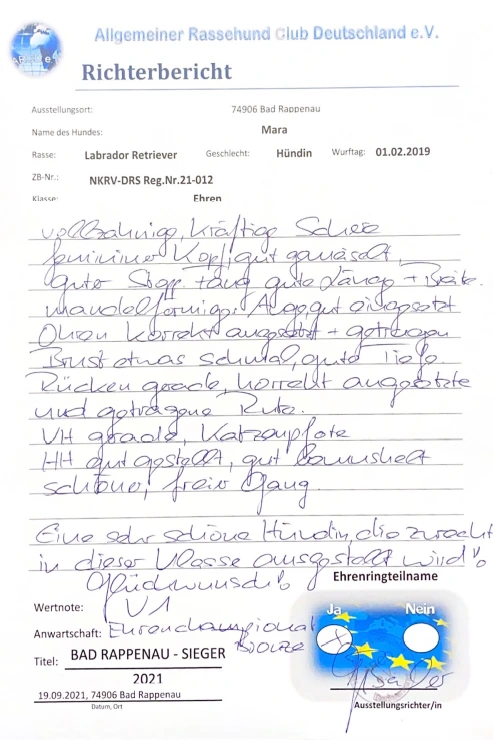 Allgemeiner Rassehund Club Deutschland e.V.
Richterbericht
Ausstellungsort: 74906 Bad Rappenau
Name des Hundes: Mara
Rasse: Labrador Retriever Geschlecht: Hündin Wurftag: 01.02.2019
ZB-Nr.: NKRV-DRS Reg.Nr.21-012
Klasse: Ehren
vollzahnige, kräftige Schere
femininer Kopf, gut gemeiselt,
guter Stop, Fang gute Länge + Breite.
mandelförmige Auge, gut eingesetzt
Ohren korrekt angesetzt + getragen
Brust etwas schmal, gute Tiefe
Rücken gerade, korrekt angesetzte
und getragene Rute.
VH gerade, Katzenpfote
HH gut gestellt, gut bemuskelt
schöner, freier Gang.
Eine sehr schöne Hündin, die zurecht
in dieser Klasse ausgestellt wird!
Glückwunsch!
Ehrenringteilname
Ja Nein
Wertnote: V1
Anwartschaft: Ehrenchampionat
Bronze
Titel: BAD RAPPENAU - SIEGER
2021
19.09.2021, 74906 Bad Rappenau
Datum, Ort
Ausstellungsrichter/in